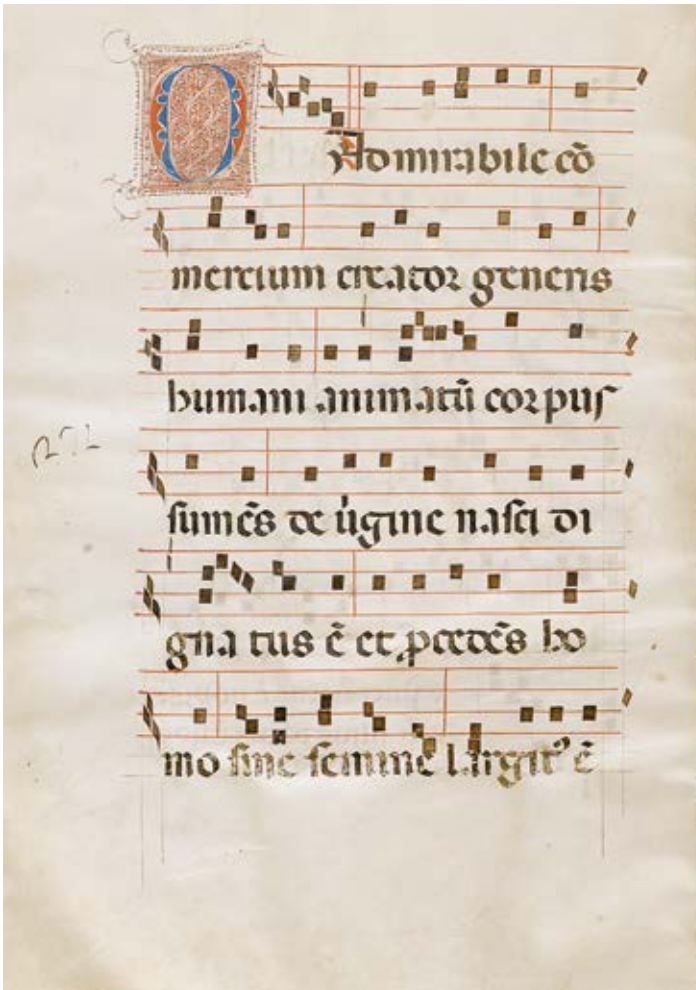 O Admirabile cō
mercium creator generis
humani animatū corpus
sumēs de ṽgine nasci di
gna tus ē et p̱cedēs ho
mo sine semine largitᵒ ē